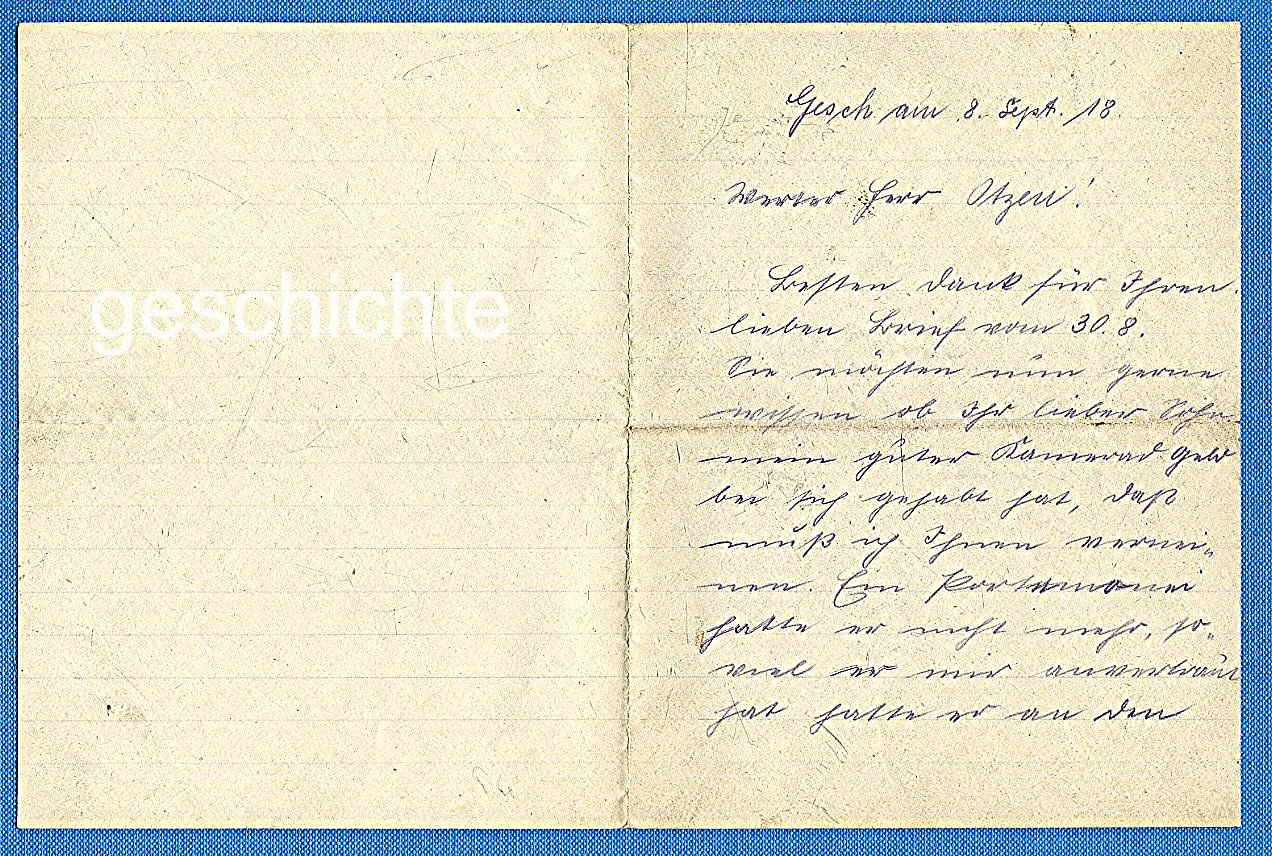 geschichte
Gesch am 8. Sept. 18.
Werter Herr Otzen!
Besten Dank für Ihren
lieben Brief vom 30.8.
Sie möchten nun gerne
wissen ob Ihr lieber Sohn
mein guter Kamerad Geld
bei sich gehabt hat, daß
muß ich Ihnen vernei-
nen. Ein Portemonei
hatte er nicht mehr, so-
viel er mir anvertraut
hat hatte er an den